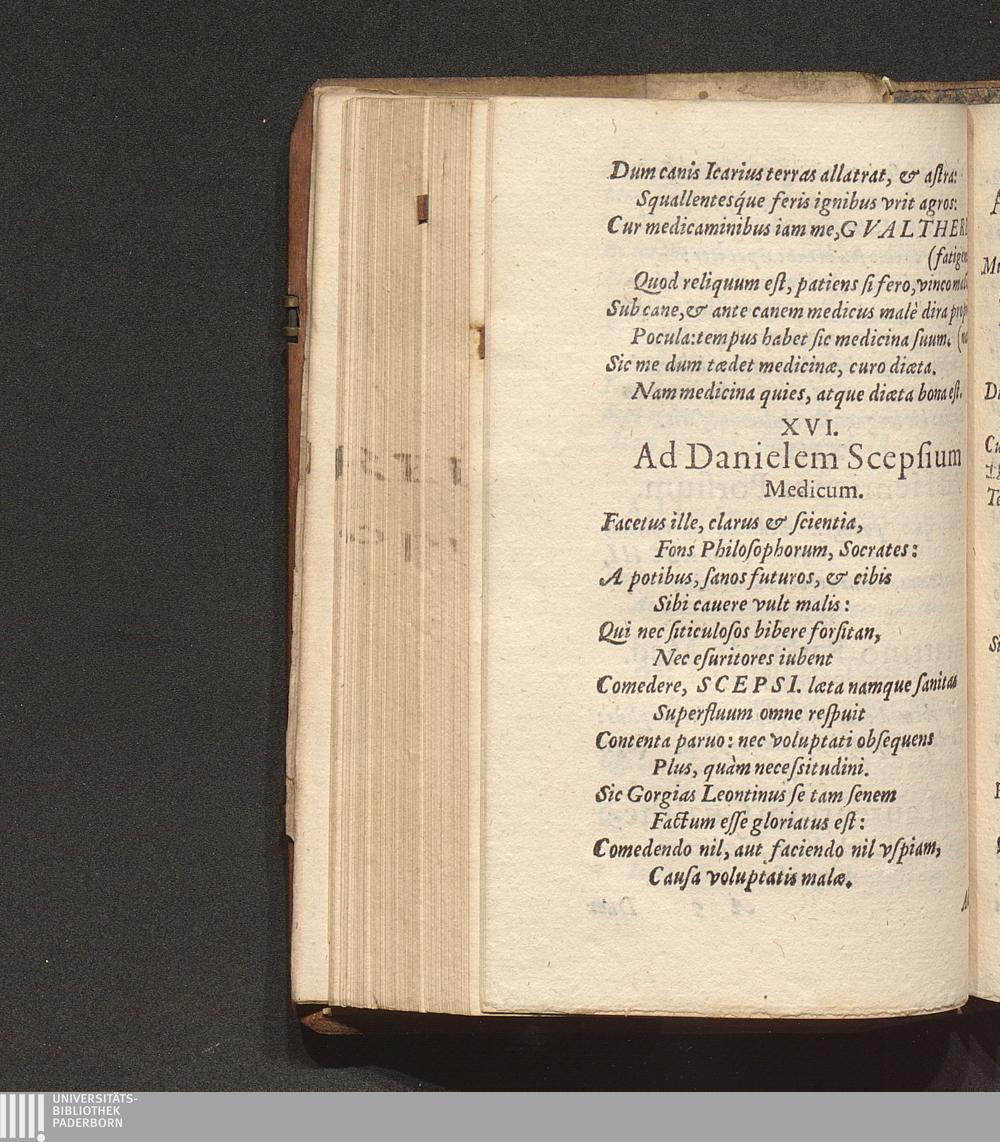 Dum canis Icarius terras allatrat, & aſtra:
Squallentesq́ue feris ignibus vrit agros:
Cur medicaminibus iam me, GVALTHERE
(fatigem
Quod reliquum eſt, patiens ſi fero, vinco
Sub cane, & ante canem medicus malè dira
Pocula: tempus habet ſic medicina ſuum.
Sic me dum tædet medicinæ, curo diæta.
Nam medicina quies, atque diæta bona eſt.
XVI.
Ad Danielem Scepſium
Medicum.
Facetus ille, clarus & ſcientia,
Fons Philoſophorum, Socrates:
A potibus, ſanos futuros, & cibis
Sibi cauere vult malis:
Qui nec ſiticuloſos bibere forſitan,
Nec eſuritores iubent
Comedere, SCEPSI. læta namque ſanitas
Superfluum omne reſpuit
Contenta paruo: nec voluptati obſequens
Plus, quàm neceſsitudini.
Sic Gorgias Leontinus ſe tam ſenem
Factum eſſe gloriatus eſt:
Comedendo nil, aut faciendo nil vſpiam,
Cauſa voluptatis malæ.
UNIVERSITÄTS-
BIBLIOTHEK
PADERBORN